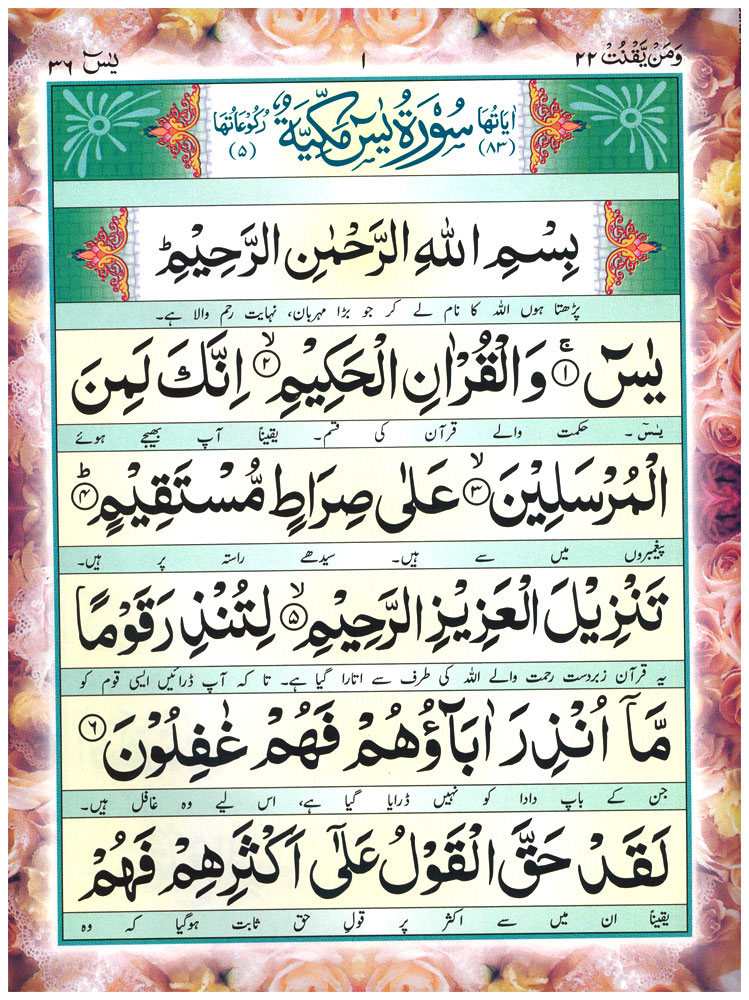 وَمَنۡ يَّقۡنُتۡ ٢٢ ١ يٰسٓ ٣٦
اٰيَاتُهَا (٨٣) سُوۡرَةُ يٰسٓ مَكِّيَّةٌ رُكُوۡعَاتُهَا (٥)
بِسْمِ اللّٰهِ الرَّحْمٰنِ الرَّحِيْمِ ؕ
پڑھتا ہوں اللہ کا نام لے کر جو بڑا مہربان، نہایت رحم والا ہے۔
يٰسٓ ۚ ﴿۱﴾ وَالْقُرْاٰنِ الْحَكِيْمِ ۙ ﴿۲﴾ اِنَّكَ لَمِنَ
یٰسٓ۔ حکمت والے قرآن کی قسم۔ یقیناً آپ بھیجے ہوئے
الْمُرْسَلِيْنَ ۙ ﴿۳﴾ عَلٰى صِرَاطٍ مُّسْتَقِيْمٍ ؕ ﴿۴﴾
پیغمبروں میں سے ہیں۔ سیدھے راستہ پر ہیں۔
تَنْزِيْلَ الْعَزِيْزِ الرَّحِيْمِ ۙ ﴿۵﴾ لِتُنْذِرَ قَوْمًا
یہ قرآن زبردست رحمت والے اللہ کی طرف سے اتارا گیا ہے۔ تا کہ آپ ڈرائیں ایسی قوم کو
مَّاۤ اُنْذِرَ اٰبَآؤُهُمْ فَهُمْ غٰفِلُوْنَ ﴿۶﴾
جن کے باپ دادا کو نہیں ڈرایا گیا ہے، اس لیے وہ غافل ہیں۔
لَقَدْ حَقَّ الْقَوْلُ عَلٰٓى اَكْثَرِهِمْ فَهُمْ
یقیناً ان میں سے اکثر پر قول حق ثابت ہوگیا کہ وہ